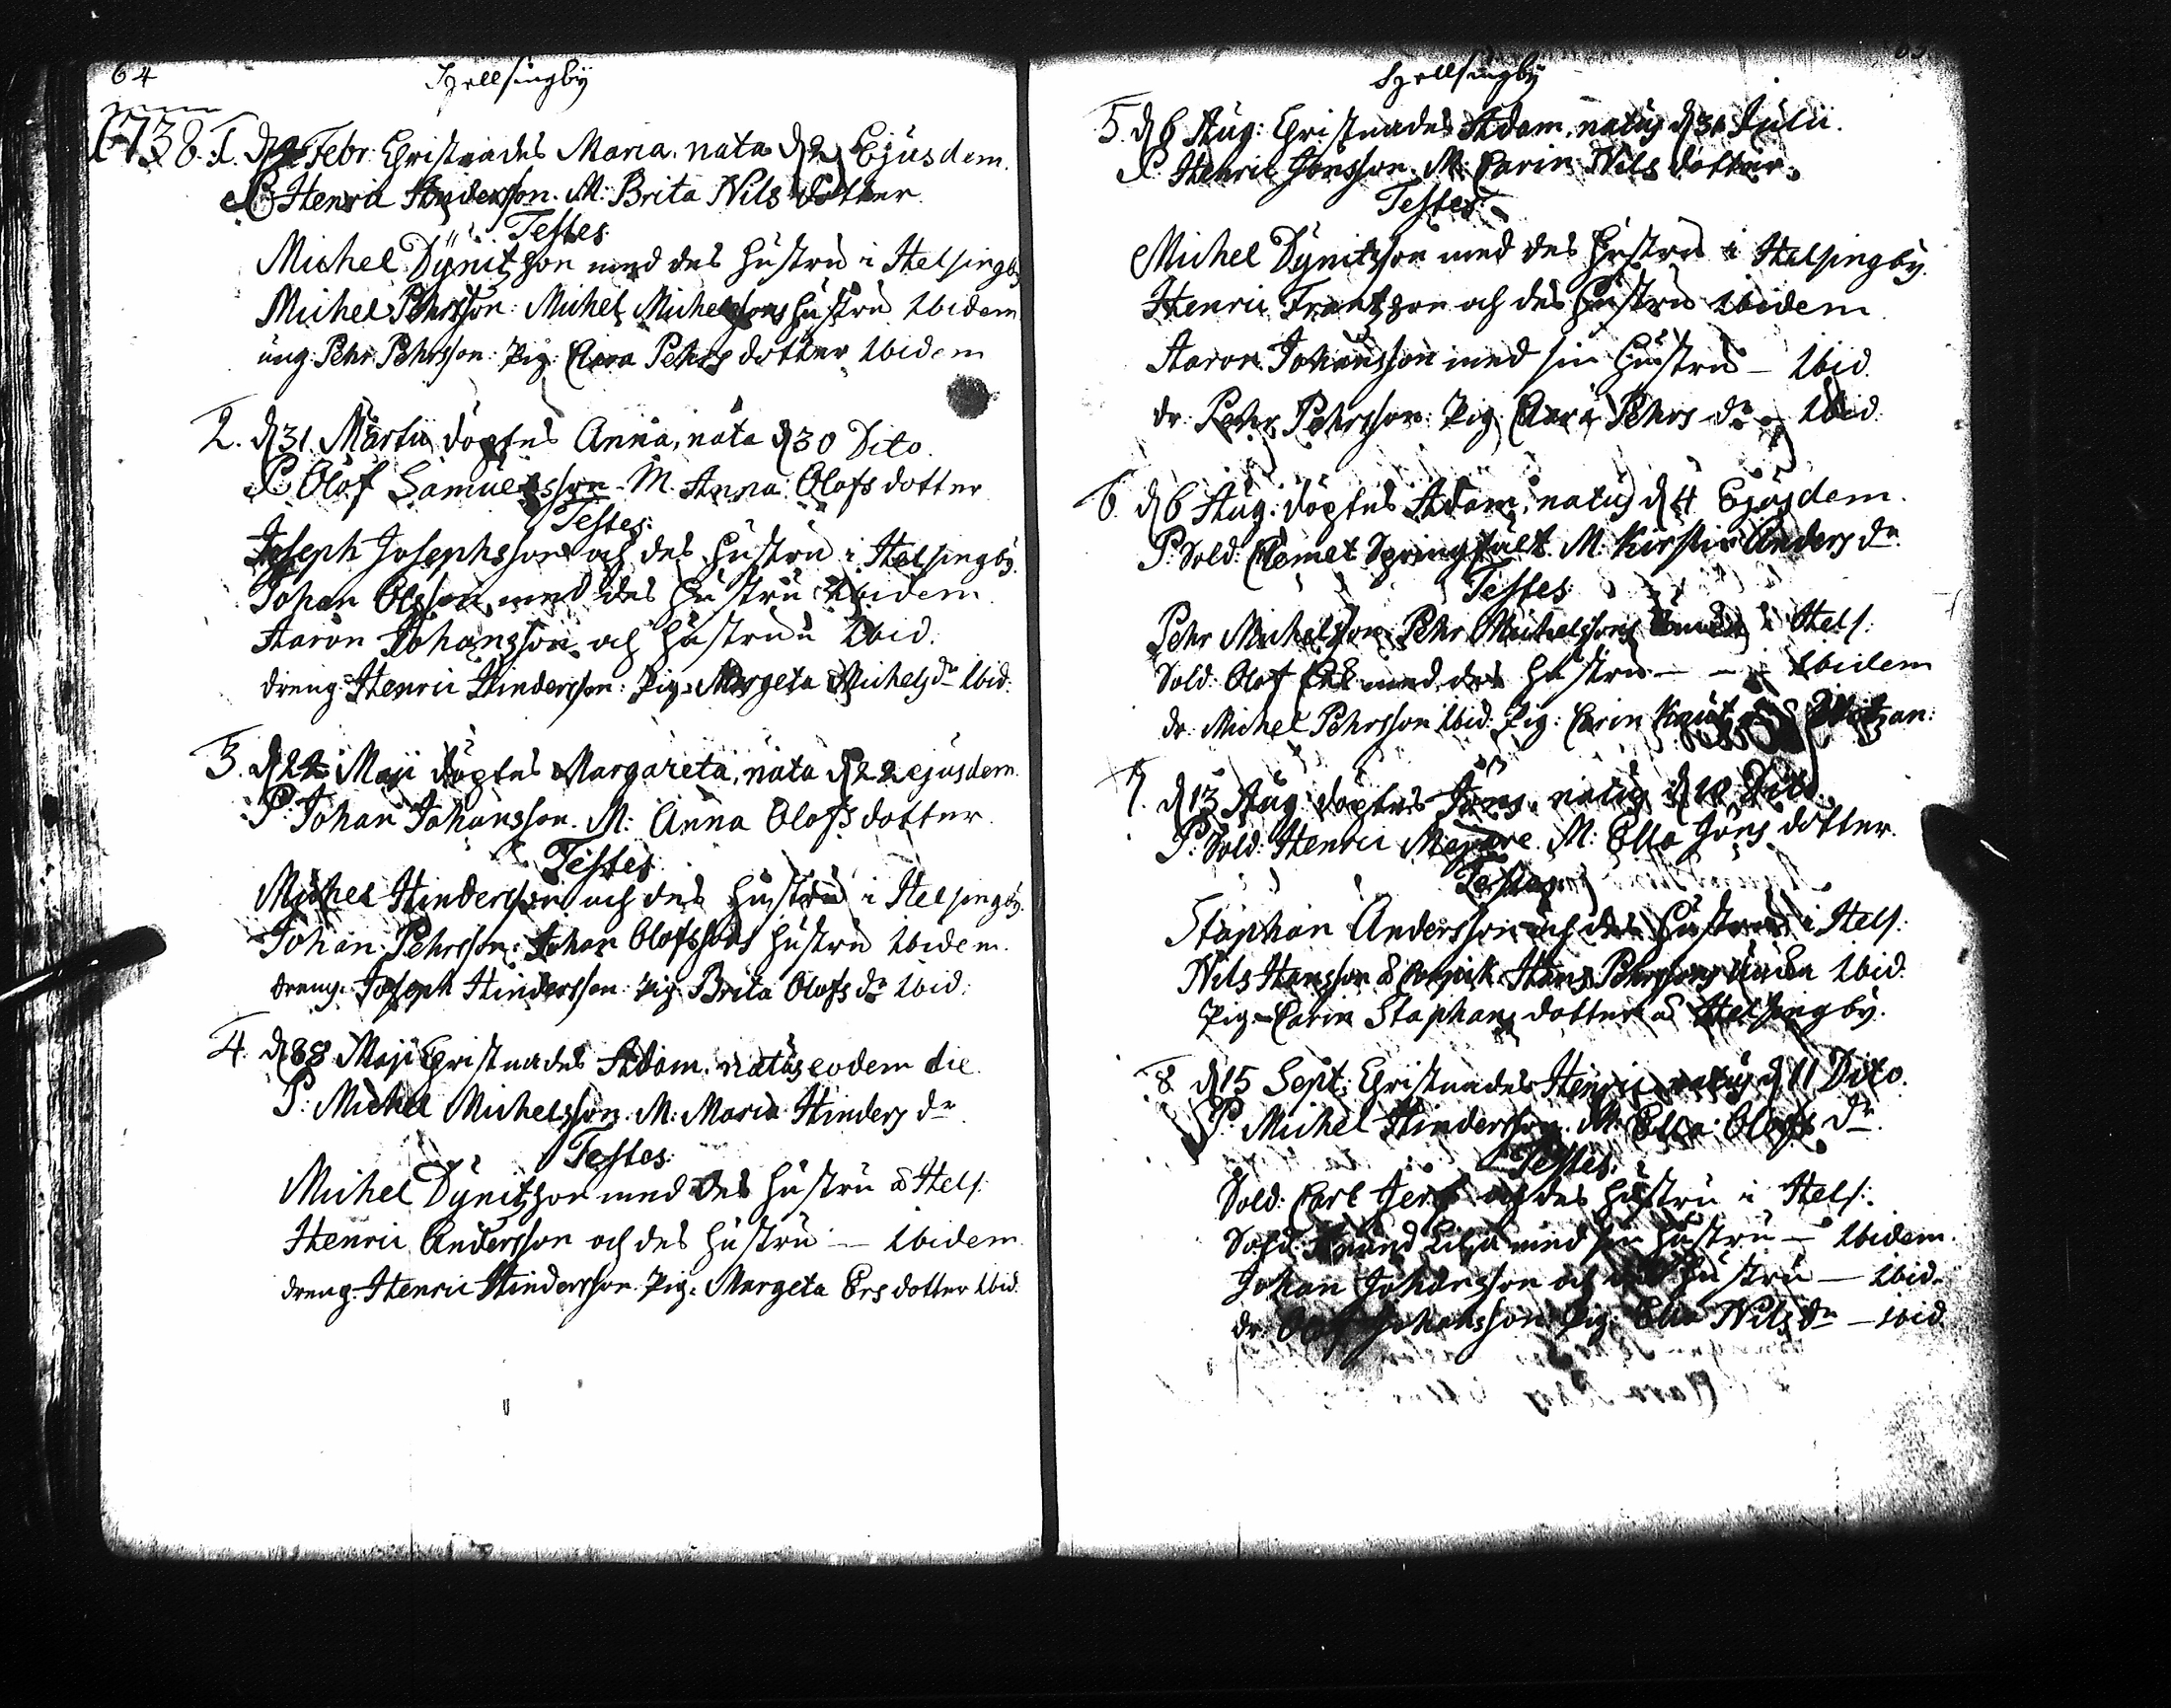 64
Hellsingby
1738. 1. d. 2 Febr: Christnades Maria, nata d. 2 Ejusdem.
P. Henric Andersson. M: Brita Nils dotter
Testes:
Michel Dynitzon med des hustru i Helsingby
Michel Pehrsson: Michel Michelsons hustru Ibidem
ung Pehr Pehrsson: Pig: Clara Pehrs dotter Ibidem
2. d. 31 Martii döptes Anna, nata d. 30 Dito.
P. Olof Samuelsson. M. Anna Olofs dotter
Testes:
Joseph Josephsson och des hustru i Helsingby.
Johan Olsson med des hustru Ibidem
Aaron Johansson och hustru Ibid.
dreng Henric Hindersson: Pig: Margeta Michels dr Ibid:
3. d. 24 Maji döptes Margareta, nata d. 22 ejusdem.
P. Johan Johansson. M: Anna Olofs dotter.
Testes:
Michel Hindersson och des hustru i Helsingby.
Johan Pehrsson: Johan Olofssons hustru Ibidem.
dreng. Joseph Hindersson: Pig Brita Olofs dr Ibid:
4. d. 28 Maji Christnades Adam, natus eodem die.
P: Michel Michelsson. M: Maria Hinders dr
Testes:
Michel Dynitzon med des hustru i Hels:
Henric Andersson och des hustru — Ibidem.
dreng Henric Hindersson. Pig: Margeta Ers dotter Ibid.
Hellsingby
5. d. 6 Aug: Christnades Adam, natus d. 31 Julii.
P Henric Jönsson. M: Carin Nils dotter.
Testes:
Michel Dynitzson med des hustru i Helsingby
Henric Frantzon och des hustru Ibidem
Aaron Johansson med sin hustru — Ibid.
dr. Pehr Pehrsson: Pig: Clara Pehrs dr Ibid.
6. d. 6 Aug: döptes Adam, natus d. 4 Ejusdem.
P. Sold: Clemet Springfält M. Kirstin Anders dr
Testes:
Pehr Michelsson: Pehr Michelssons i Hels:
Sold: Olof med des hustru — — Ibidem
dr. Michel Pehrsson Ibid: Pig: Carin
7. d. 13 Aug: döptes Jöns, natus d. 10 Dito.
P: Sold: Henric M: Ella Jöns dotter.
Testes:
Staphan Andersson och des hustru i Hels:
Nils Hansson Hans Pehrssons Ibid.
Pig. Carin Staphans dotter Helsingby.
8. d. 15 Sept: Christnades Henric, natus d. 11 Dito.
P. Michel Hindersson. M: Ella Olofs dr
Testes:
Sold: Carl och des hustru i Hels:
Sold: Lilja med sin hustru — Ibidem.
Johan Johansson och des hustru — Ibid.
dr. Olof Johansson Pig: Ella Nils dr — ibid